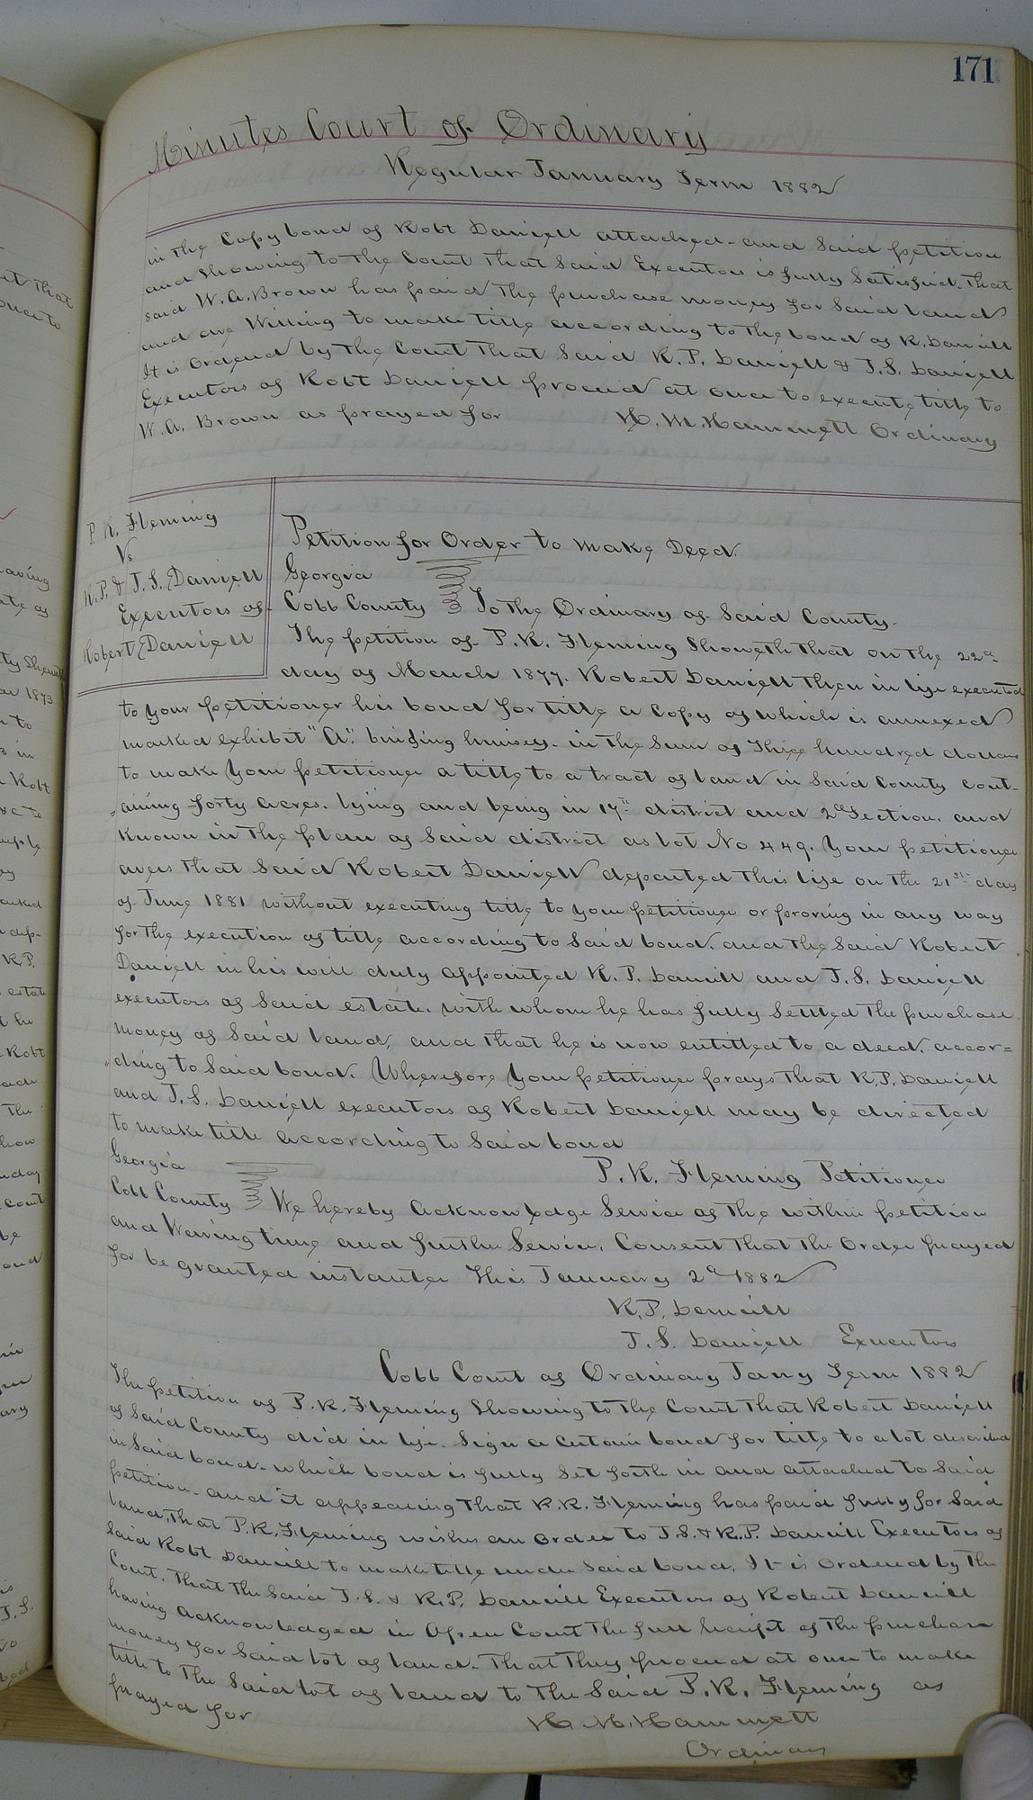 171
Minutes Court of Ordinary
Regular January Term 1882
in the Copy bond of Robt Daniell attached and Said petition
and Showing to the Court that Said Executors is fully Satisfied that
said W. A. Brown has paid the purchase money for Said land
and are Willing to make title according to the bond of R. Daniell
It is Ordered by the Court that Said R. P. Daniell & J. S. Daniell
Executors of Robt Daniell proceed at once to execute title to
W. A. Brown as prayed for H. M. Hammett Ordinary
P. K. Fleming
Vs
R. P. & J. S. Daniell
Executors of
Robert Daniell
Petition for Order to Make Deed.
Georgia
Cobb County To the Ordinary of Said County.
The petition of P. K. Fleming Showeth that on the 22nd
day of March 1877. Robert Daniell then in life executed
to your petitioner his bond for title a Copy of which is annexed
marked exhibit "A". binding himself in the Sum of Three hundred dollars
to make your petitioner a title to a tract of land in Said County cont-
aining forty acres. lying and being in 17th district and 2nd Section. and
Known in the plan of Said district as lot No 449. Your petitioner
avers that Said Robert Daniell departed this life on the 21st day
of June 1881 without executing title to your petitioner or proving in any way
for the execution of title according to Said bond. and the Said Robert
Daniell in his will duly appointed R. P. Daniell and J. S. Daniell
executors of Said estate. with whom he has fully Settled the purchase
money of Said land, and that he is now entitled to a deed. accor=
ding to Said bond. Wherefore Your petitioner prays that R. P. Daniell
and J. S. Daniell executors of Robert Daniell may be directed
to make title according to Said bond
P. K. Fleming Petitioner
Georgia
Cobb County We hereby acknowledge Service of the within petition
and Waiving time and further Service. Consent that the Order prayed
for be granted instanter This January 2d 1882
R. P. Daniell
J. S. Daniell Executors
Cobb Court of Ordinary Jany Term 1882
The petition of P. K. Fleming Showing to the Court that Robert Daniell
of Said County did in life. Sign a Certain bond for title to a lot described
in Said bond. which bond is fully Set forth in and attached to Said
petition. and it appearing that P. K. Fleming has paid fully for Said
land, that P. K. Fleming wishes an Order to J. S. & R. P. Daniell Executors of
Said Robt Daniell to make title under Said bond. It is Ordered by the
Court. That the Said J. S. & R. P. Daniell Executors of Robert Daniell
having acknowledged in Open Court the full receipt of the purchase
money for Said lot of land. That They proceed at once to make
title to the Said lot of land to the Said P. K. Fleming as
prayed for H. M. Hammett
Ordinary